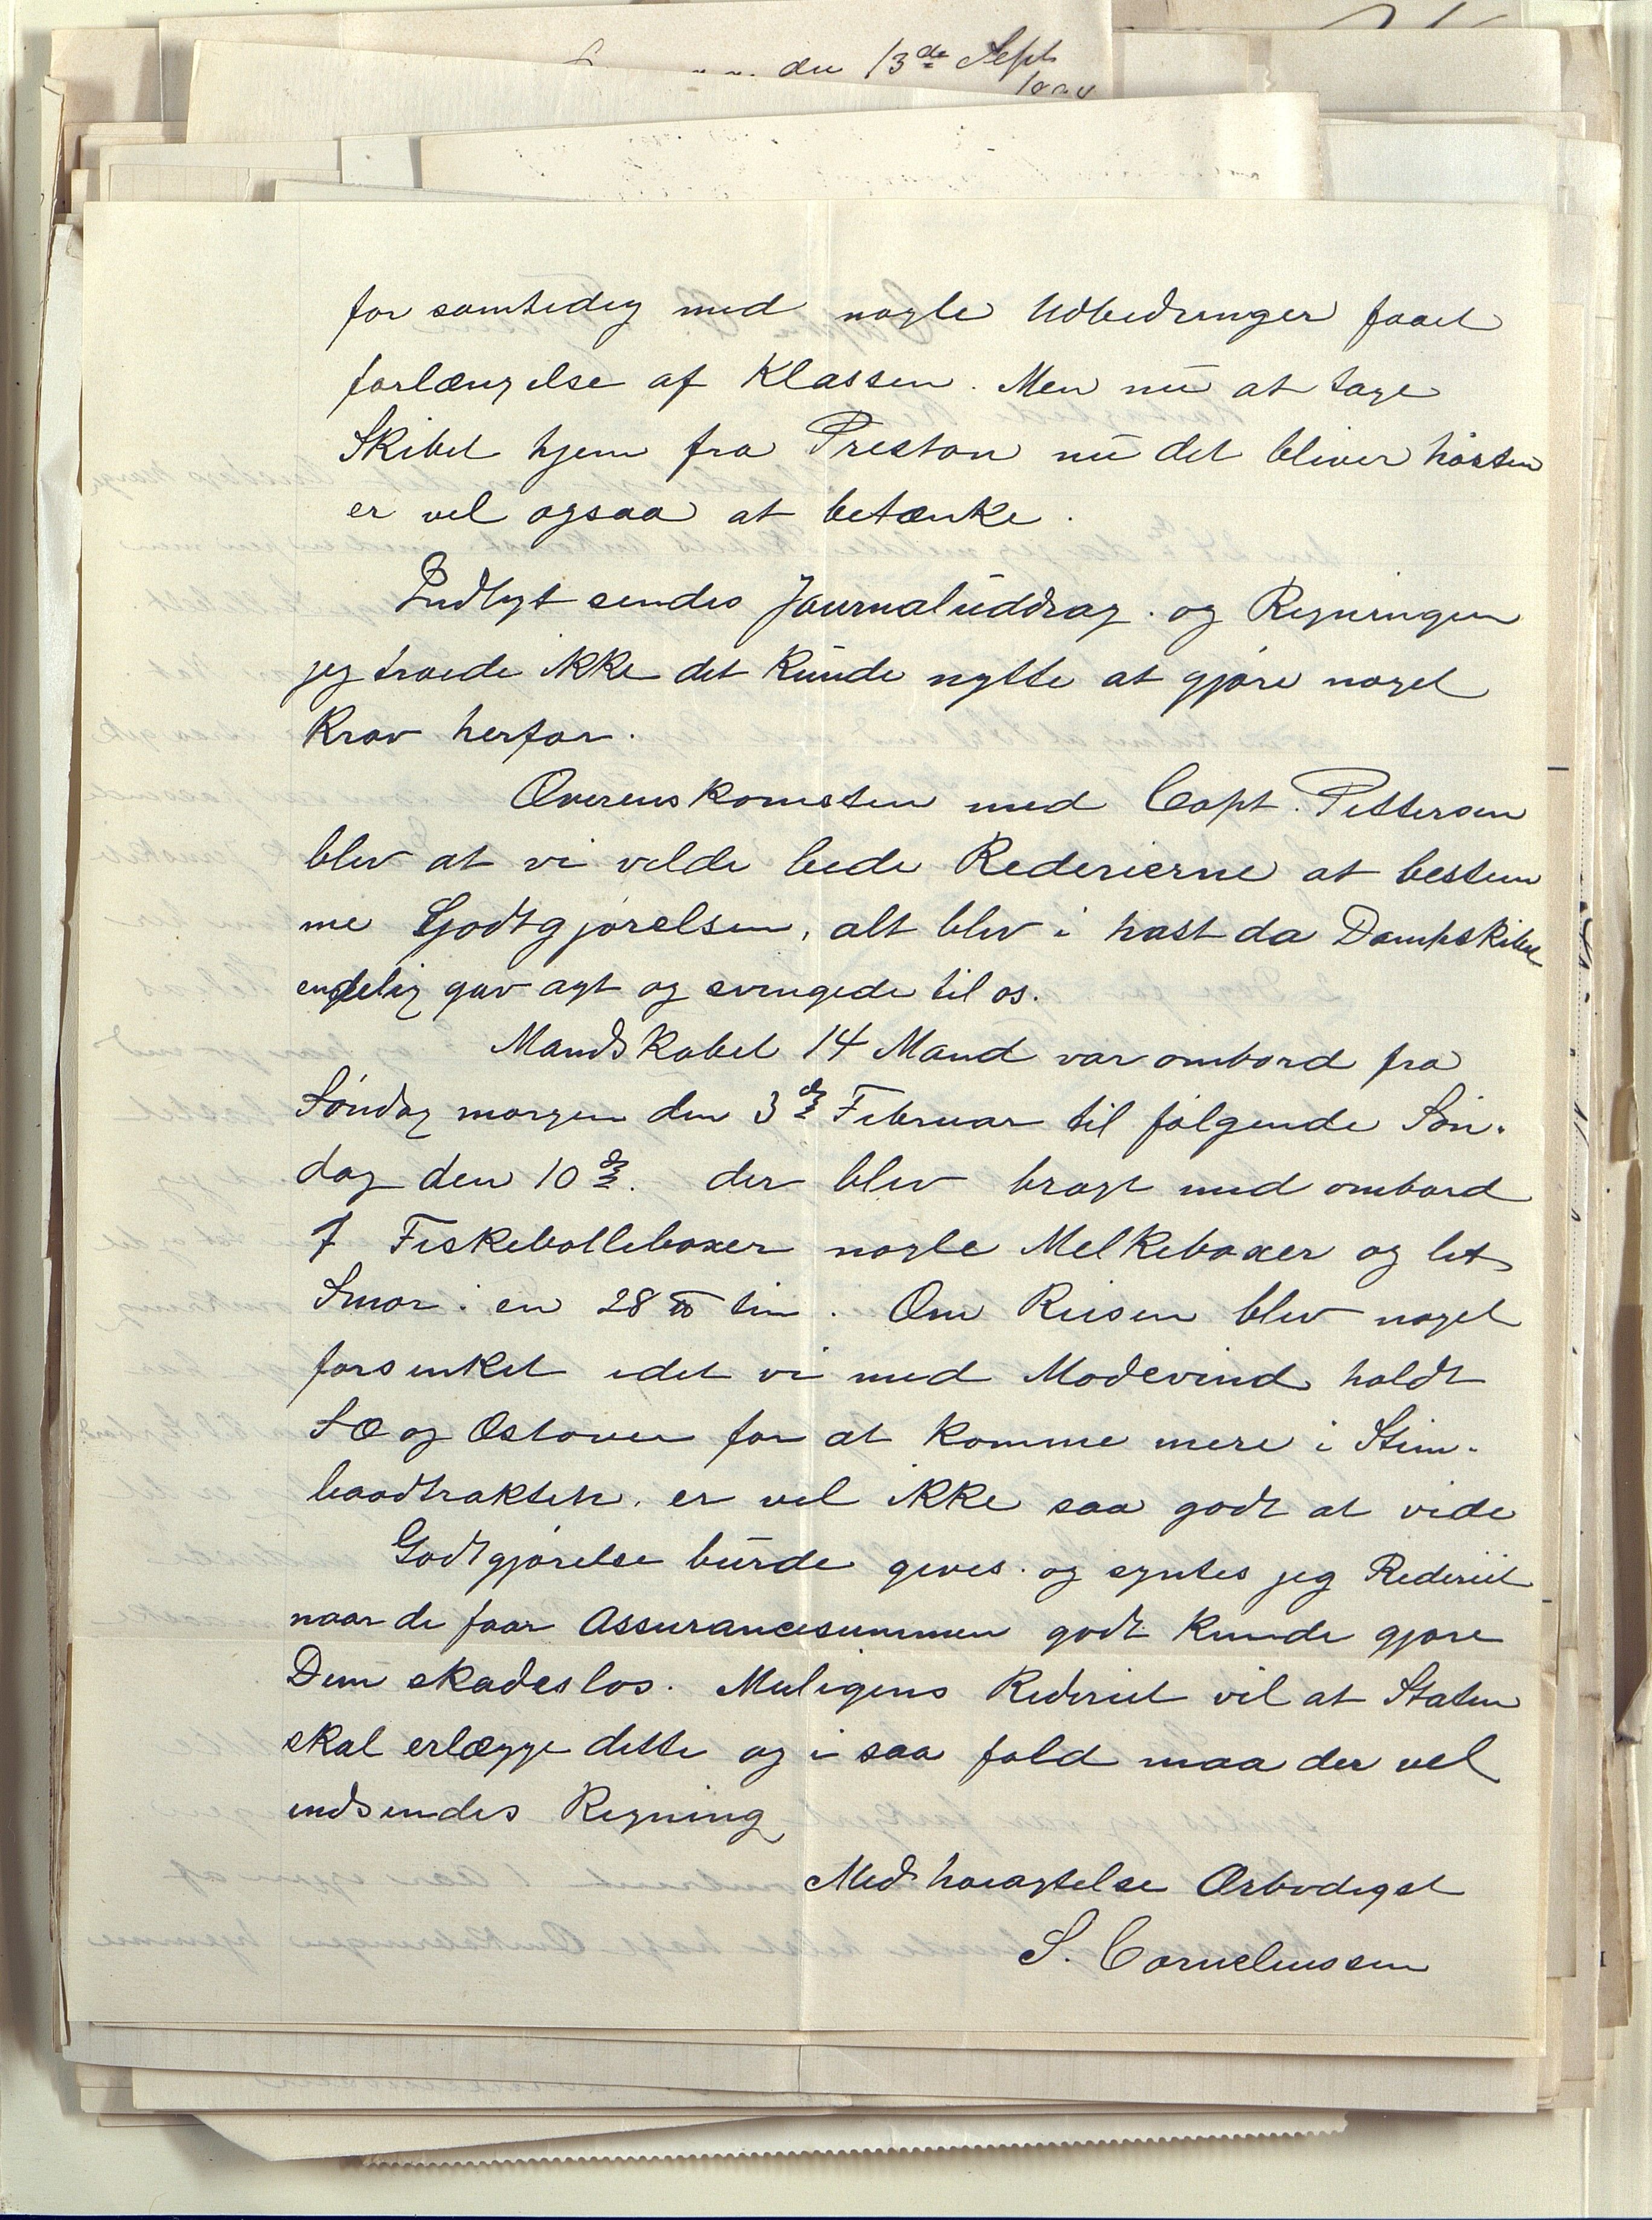 den 13de Sept
for samtidig med nogle Udbedringer faaet
forlængelse af Klassen. Men nu at tage
Skibet hjem fra Preston nu det bliver høsten
er vel ogsaa at betænke.
Indlagt sendes Journaluddrag. og Regningen
jeg troede ikke det kunde nytte at gjøre noget
Krav herfor.
Overenskomsten med Capt. Pettersen
blev at vi vilde bede Rederierne at bestem
me Godtgjørelsen, alt blev i hast da Dampskibet
endelig gav agt og svingede til os.
Mandskabet 14 Mand var ombord fra
Søndag morgen den 3de Februar til følgende Søn-
dag den 10de. der blev bragt med ombord
7 Fiskebolleboxer nogle Melkeboxer og let
Smør i en 28 ℔ tin. Om Reisen blev noget
forsinket idet vi med Modevind holdt
SO og Ostover for at komme mere i Stim-
baadtrakten. er vel ikke saa godt at vide
Godtgjørelse burde gives. og syntes jeg Rederiet
naar de faar Assurancesummen godt kunde gjøre
Dem skadesløs. Muligens Rederiet vil at Staten
skal erlægge dette og i saa fald maa der vel
indsendes Regning
Med høiagtelse Ærbødigst
S. Corneliussen